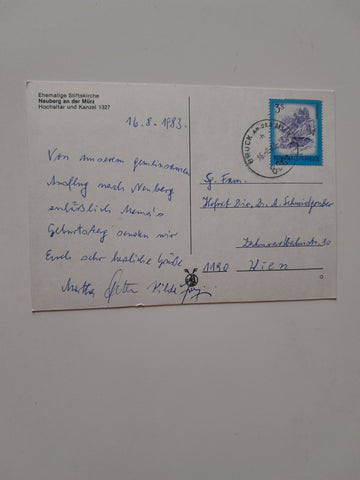 Ehemalige Stiftskirche
Neuberg an der Mürz
Hochaltar und Kanzel 1327
16.8.1983.
Von unserem gemeinsamen
Ausflug nach Neuberg
anläßlich Mama's
Geburtstag senden wir
Euch sehr herzliche Grüße
Martha Hilde
3 S
BRUCK AN DER MUR
Sg. Fam.
Hofrat Dir. Dr. A. Schmidgruber
10
1190 Wien